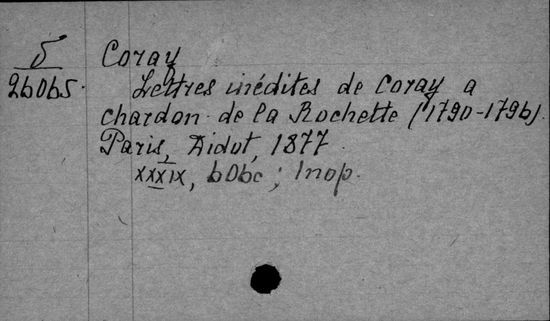 5
26065.
Coray
Lettres inédites de Coray a
chardon de la Rochette (1790-1796).
Paris, Didot, 1877
XXXIX, 606c; Inop.